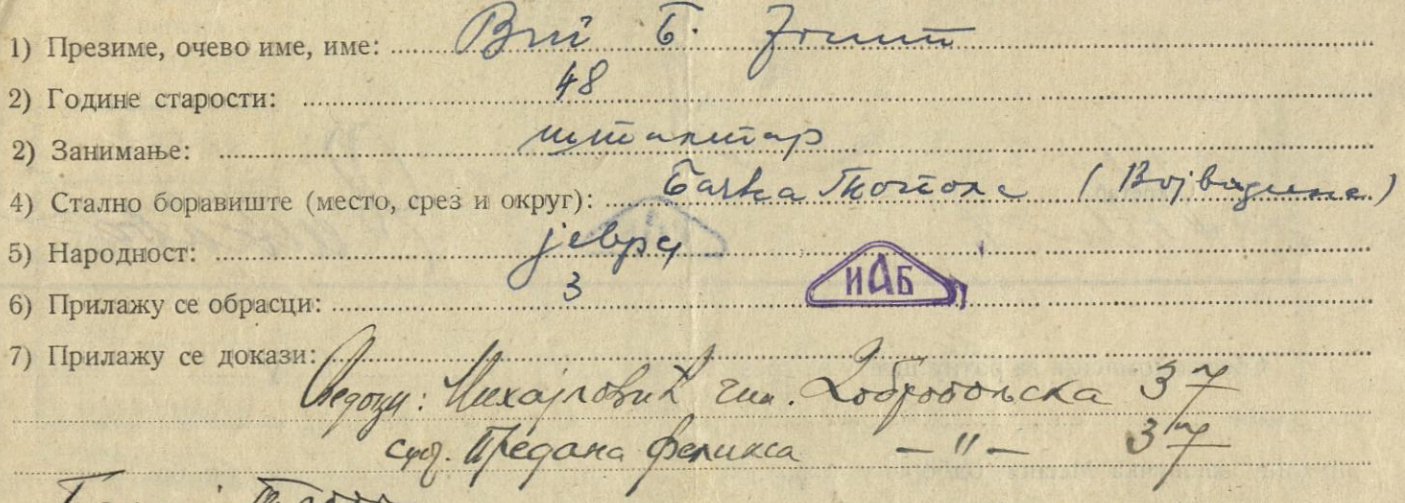 1) Презиме, очево име, име: Б.
2) Године старости: 48
2) Занимање:
4) Стално боравиште (место, срез и округ): Бачка Топола (Војводина)
5) Народност: јевреј
6) Прилажу се обрасци: 3
ИАБ
7) Прилажу се докази:
Сведоци: Михајловић чин. Добропољска 37
Предана Феликса — " — 37